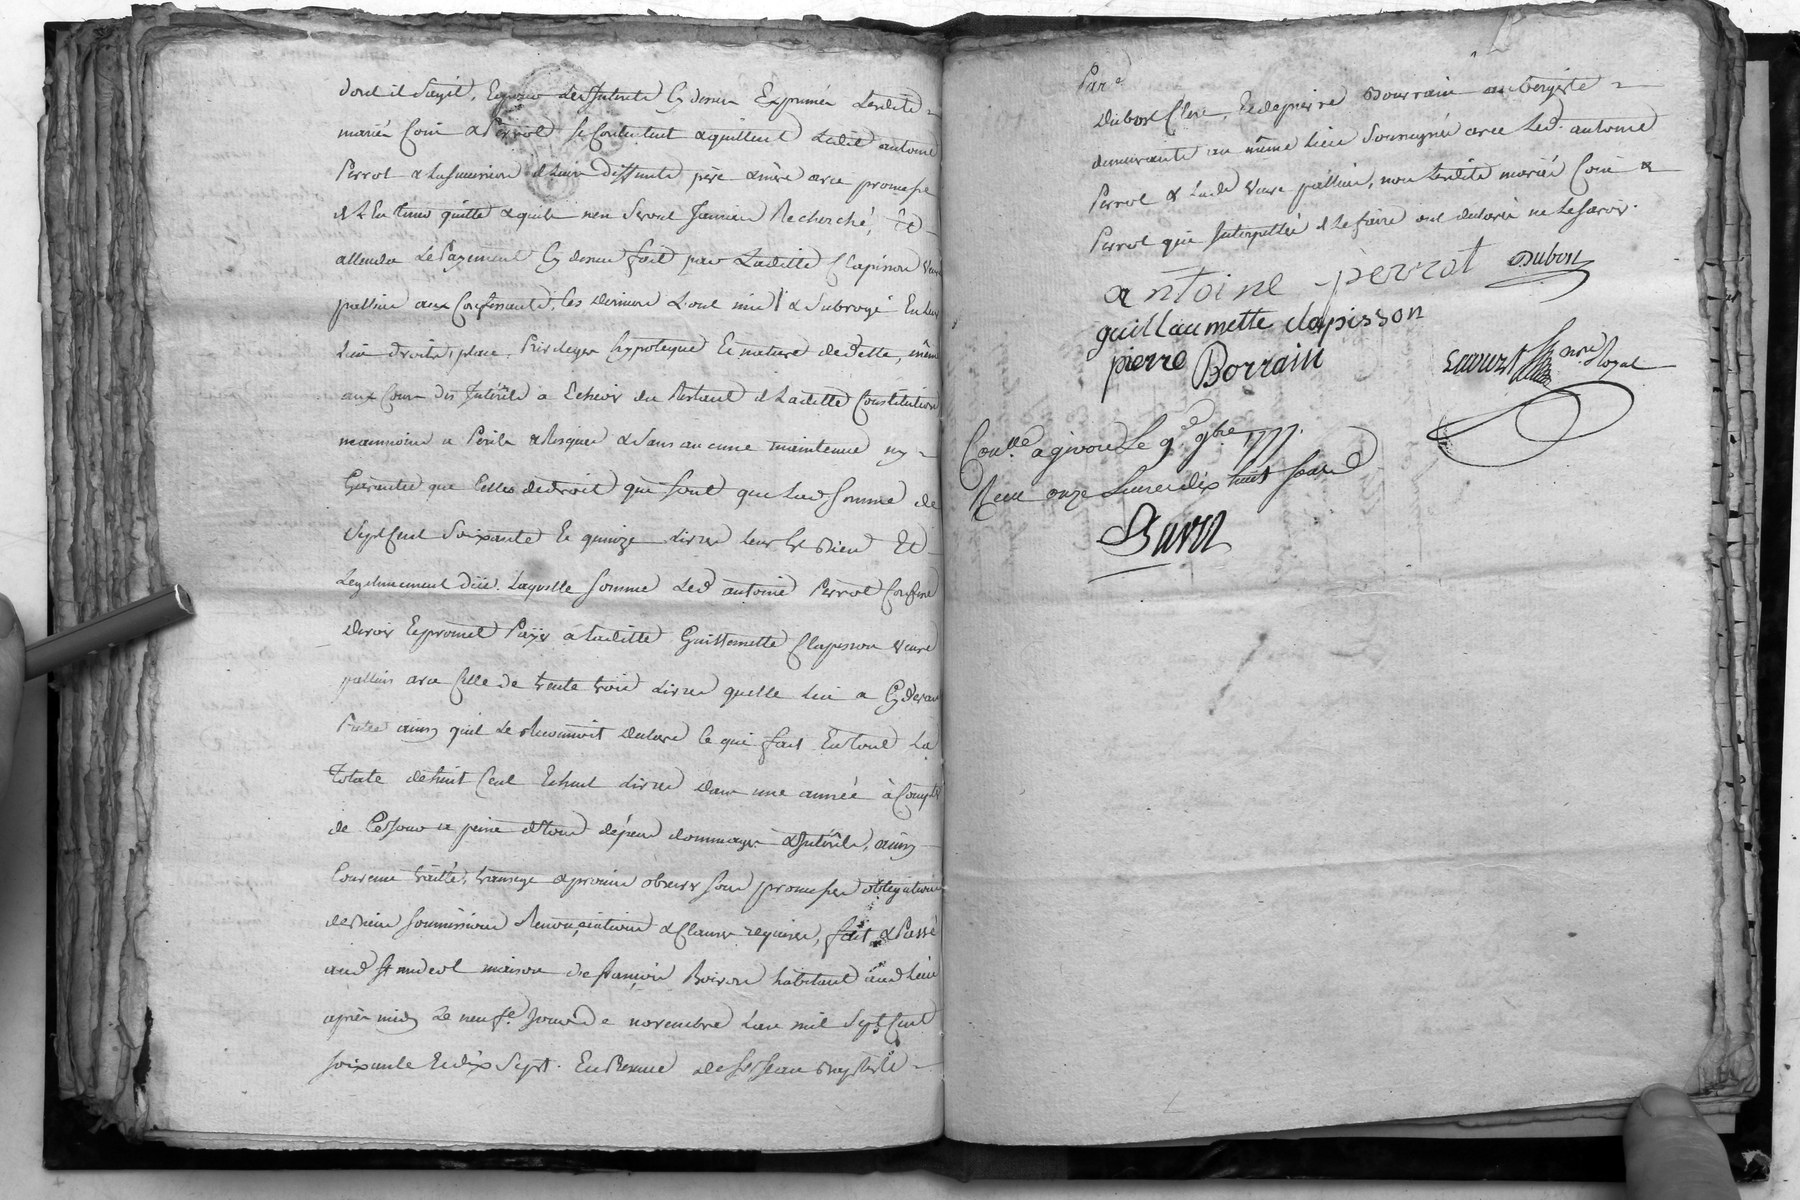 dont il sagit, Et pour des Interets Cy dessus Exprimés Lesdits
mariés Coin & Perrot se Contentent & quittent Ledit antoine
Perrot & La succession de Leurs deffunts père & mère avec promesse
de Len tenir quitte & quil nen seront Jamais Recherché, Et
attendu Le Payement Cy dessus fait par Laditte Clapisson veuve
pallius aux Confessants, Ces derniers Lont mis & Subrogé En leur
Lieu droits, place, Privileges hypoteque Et nature de dette, même
aux Cours des Intérêts a Echeoir du Restant de Laditte Constitution
neanmoins a Périls & Risques & sans aucune maintenue ny
Garanties que Celles de droit qui sont que Lad somme de
Sept Cent Soixante Et quinze Livres leur Est bien Et
Legitimement düe. Laquelle somme Led antoine Perrot Confesse
devoir Et promet Payer a Laditte Guillemette Clapisson veuve
pallius avec Celle de trente trois Livres quelle lui a Cy devant
Pretée ainsy quil Le Reconnoit & declare ce qui fait En tout La
Totale de huit Cent Et huit Livres dans une année à Compter
de Ce Jour a peine de tous dépens dommages & Intérêts, ainsy
Convenu traitté, transigé & promis observer sous promesses obligations
de biens soumissions Renonciations & Clauses requises, fait & Passé
aud St andeol maison de françois Boiron habitant aud Lieu
après midy Le neufe. Jour de novembre Lan mil Sept Cent
soixante Et dix Sept. En Presence de Sr Jean Baptiste
Par e
Dubost Clerc, Et de pierre Bourrain aubergiste
demeurants au même Lieu Soussignés avec Led. antoine
Perrot & Lade veuve pallius, non Lesdits mariés Coin &
Perrot qui Interpellés de le faire ont declaré ne Le Savoir.
antoine perrot Dubost
guillaumette clapisson
pierre Borrain
nre Royal
Conlle. a givors Le 9e 9bre 1777.
Reçu onze Livres dix huit sols